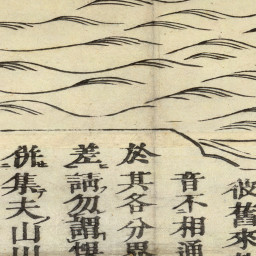 舊來
音不相通
於其各分界
差請勿謂
併集夫山川